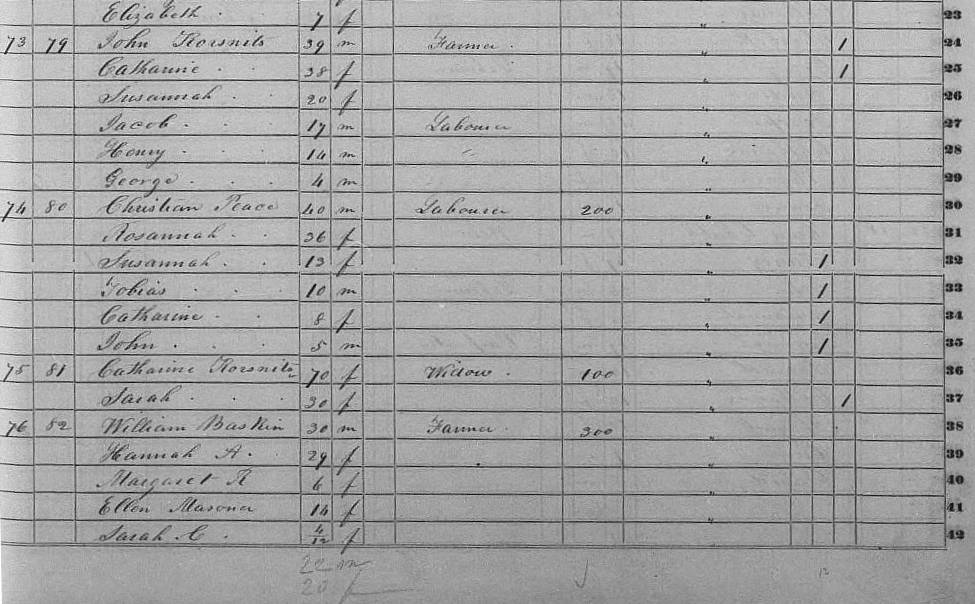 Elizabeth 7 f 23
73 79 John Korsnits 39 m Farmer 1 24
Catharine 38 f 1 25
Susannah 20 f 26
Jacob 17 m Labourer 27
Henry 14 m " 28
George 4 m 29
74 80 Christian Peace 40 m Labourer 200 " 30
Rosannah 36 f " 31
Susannah 13 f " 1 32
Tobias 10 m " 1 33
Catharine 8 f " 1 34
John 5 m " 1 35
75 81 Catharine Korsnits 70 f Widow 100 " 36
Sarah 30 f " 1 37
76 82 William Baskin 30 m Farmer 300 " 38
Hannah A. 29 f " 39
Margaret R 6 f " 40
Ellen Masoner 14 f " 41
Sarah C 4/12 f " 42
22 m
20 f